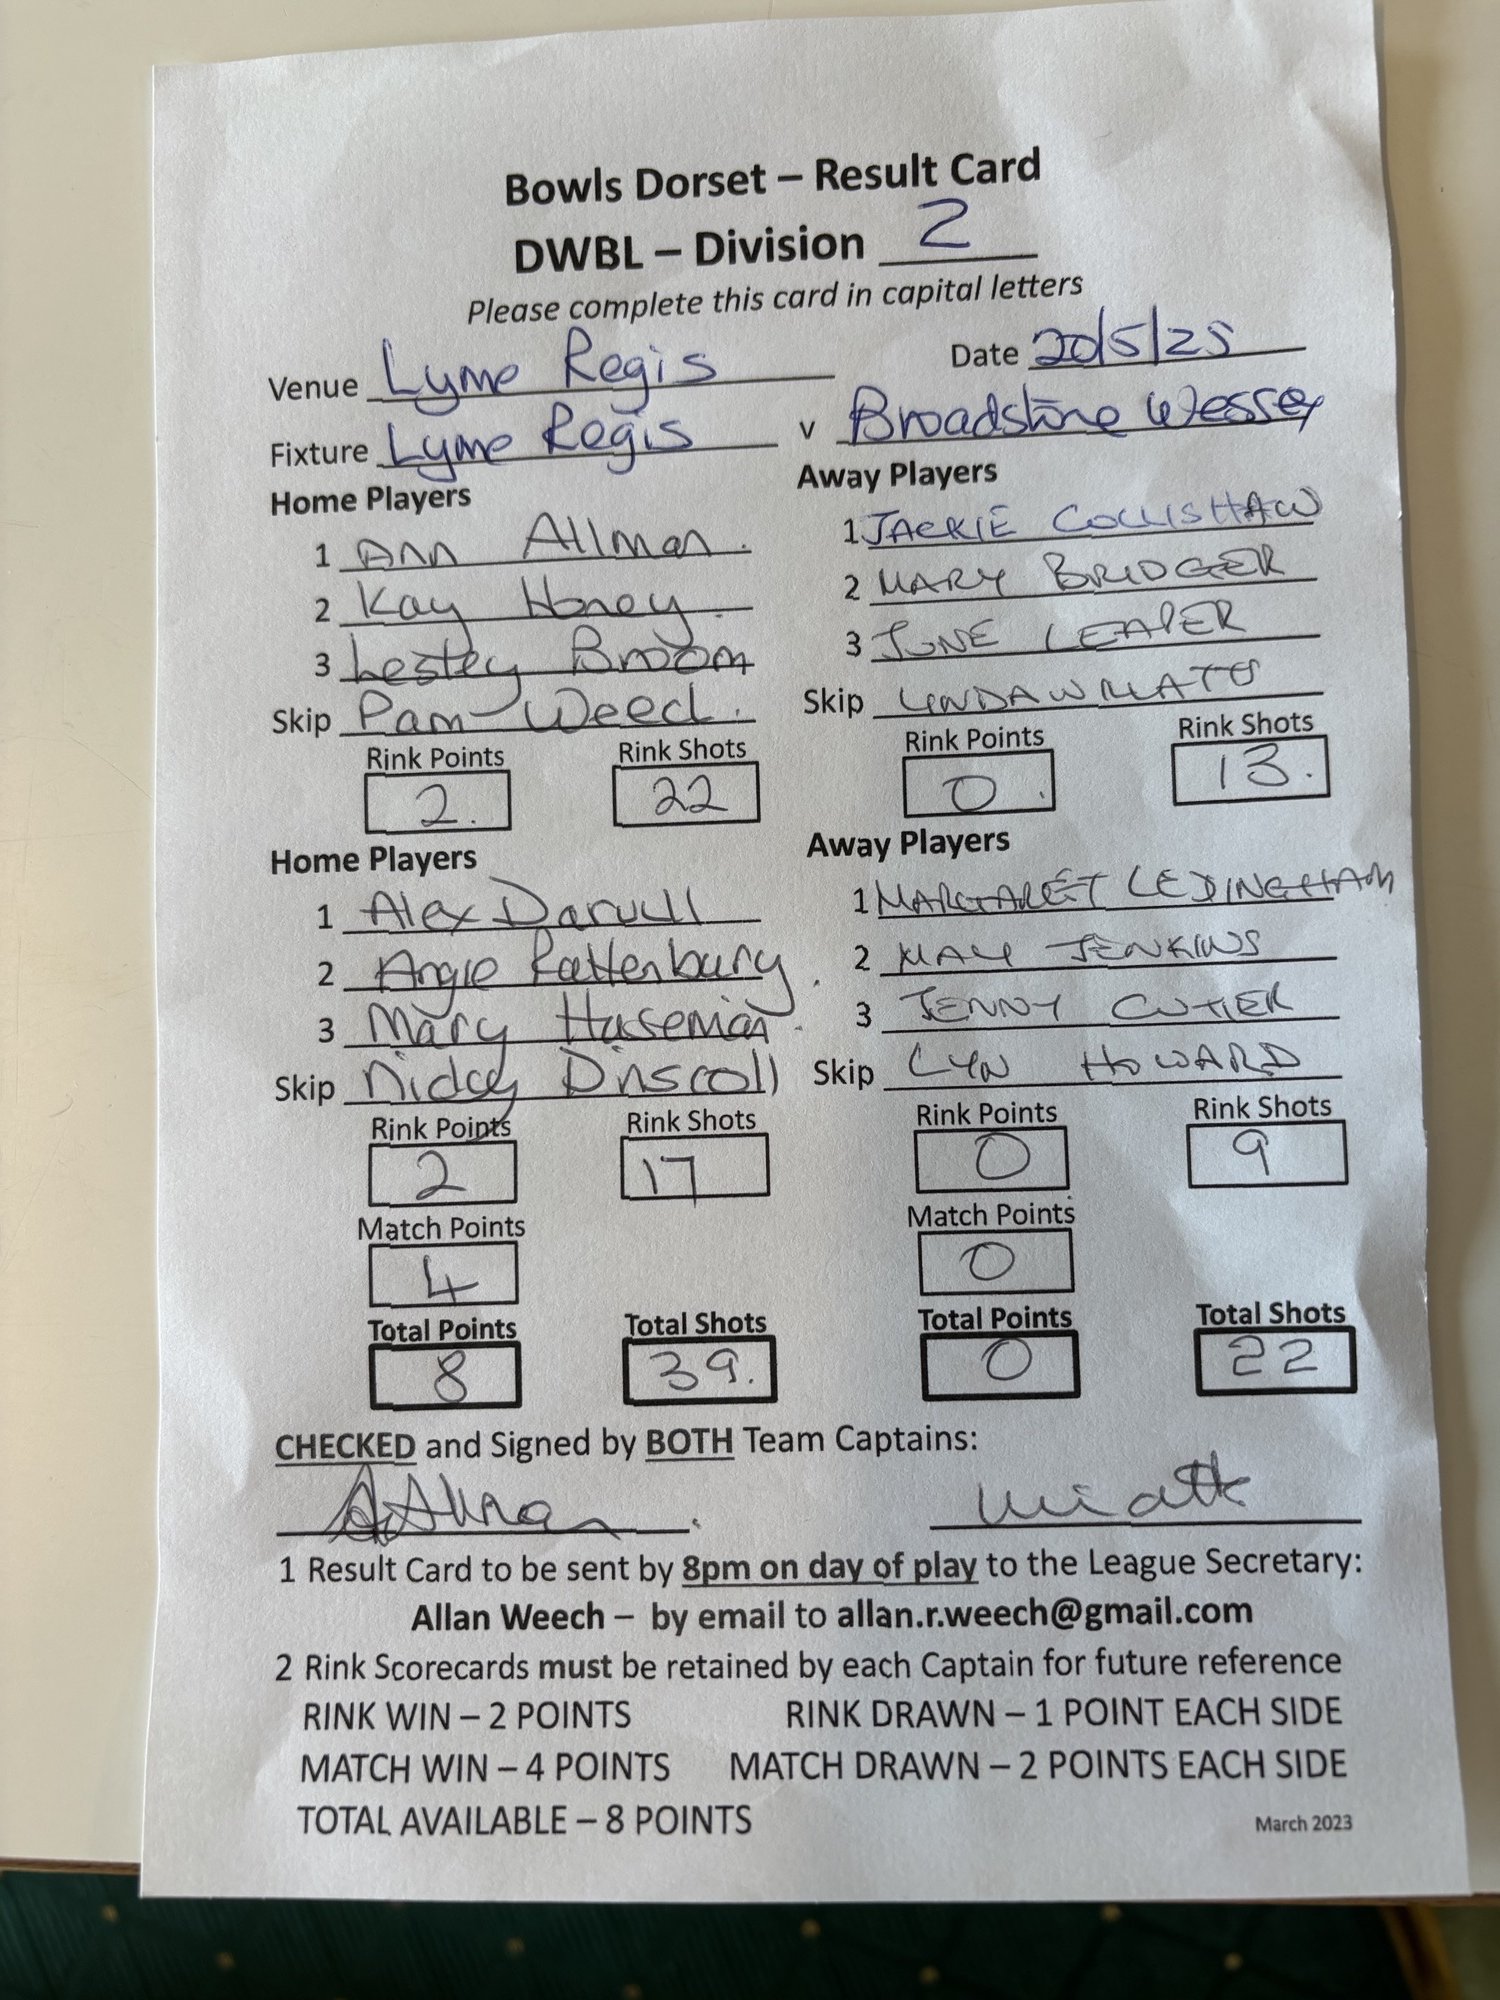 Bowls Dorset – Result Card
DWBL – Division 2
Please complete this card in capital letters
Venue Lyme Regis Date 20/5/25
Fixture Lyme Regis v Broadstone Wessex
Home Players Away Players
1 Ann Allman. 1 JACKIE COLLISHAW
2 Kay Honey. 2 MARY BRIDGER
3 Lesley Broom 3 JUNE LEAPER
Skip Pam Weech. Skip LINDA WILLATTS
Rink Points Rink Shots Rink Points Rink Shots
2. 22 0. 13.
Home Players Away Players
1 Alex Darvill 1 MARGARET LEDINGHAM
2 Angie Rattenbury. 2 MAY JENKINS
3 Mary Huseman. 3 JENNY CUTLER
Skip Nicky Driscoll Skip LYN HOWARD
Rink Points Rink Shots Rink Points Rink Shots
2 17 0 9
Match Points Match Points
4 0
Total Points Total Shots Total Points Total Shots
8 39. 0 22
CHECKED and Signed by BOTH Team Captains:
1 Result Card to be sent by 8pm on day of play to the League Secretary:
Allan Weech – by email to allan.r.weech@gmail.com
2 Rink Scorecards must be retained by each Captain for future reference
RINK WIN – 2 POINTS RINK DRAWN – 1 POINT EACH SIDE
MATCH WIN – 4 POINTS MATCH DRAWN – 2 POINTS EACH SIDE
TOTAL AVAILABLE – 8 POINTS
March 2023